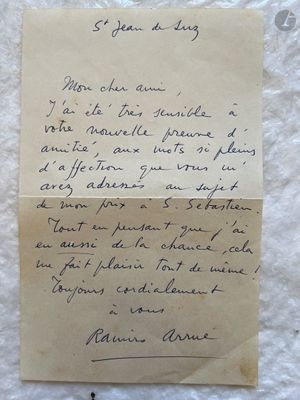 St Jean de Luz
Mon cher ami,
J'ai été très sensible à
votre nouvelle preuve d'
amitié, aux mots si pleins
d'affection que vous m'
avez adressés au sujet
de mon prix à S. Sebastien.
Tout en pensant que j'ai
eu aussi de la chance, cela
me fait plaisir tout de même!
Toujours cordialement
à vous
Ramiro Arrué